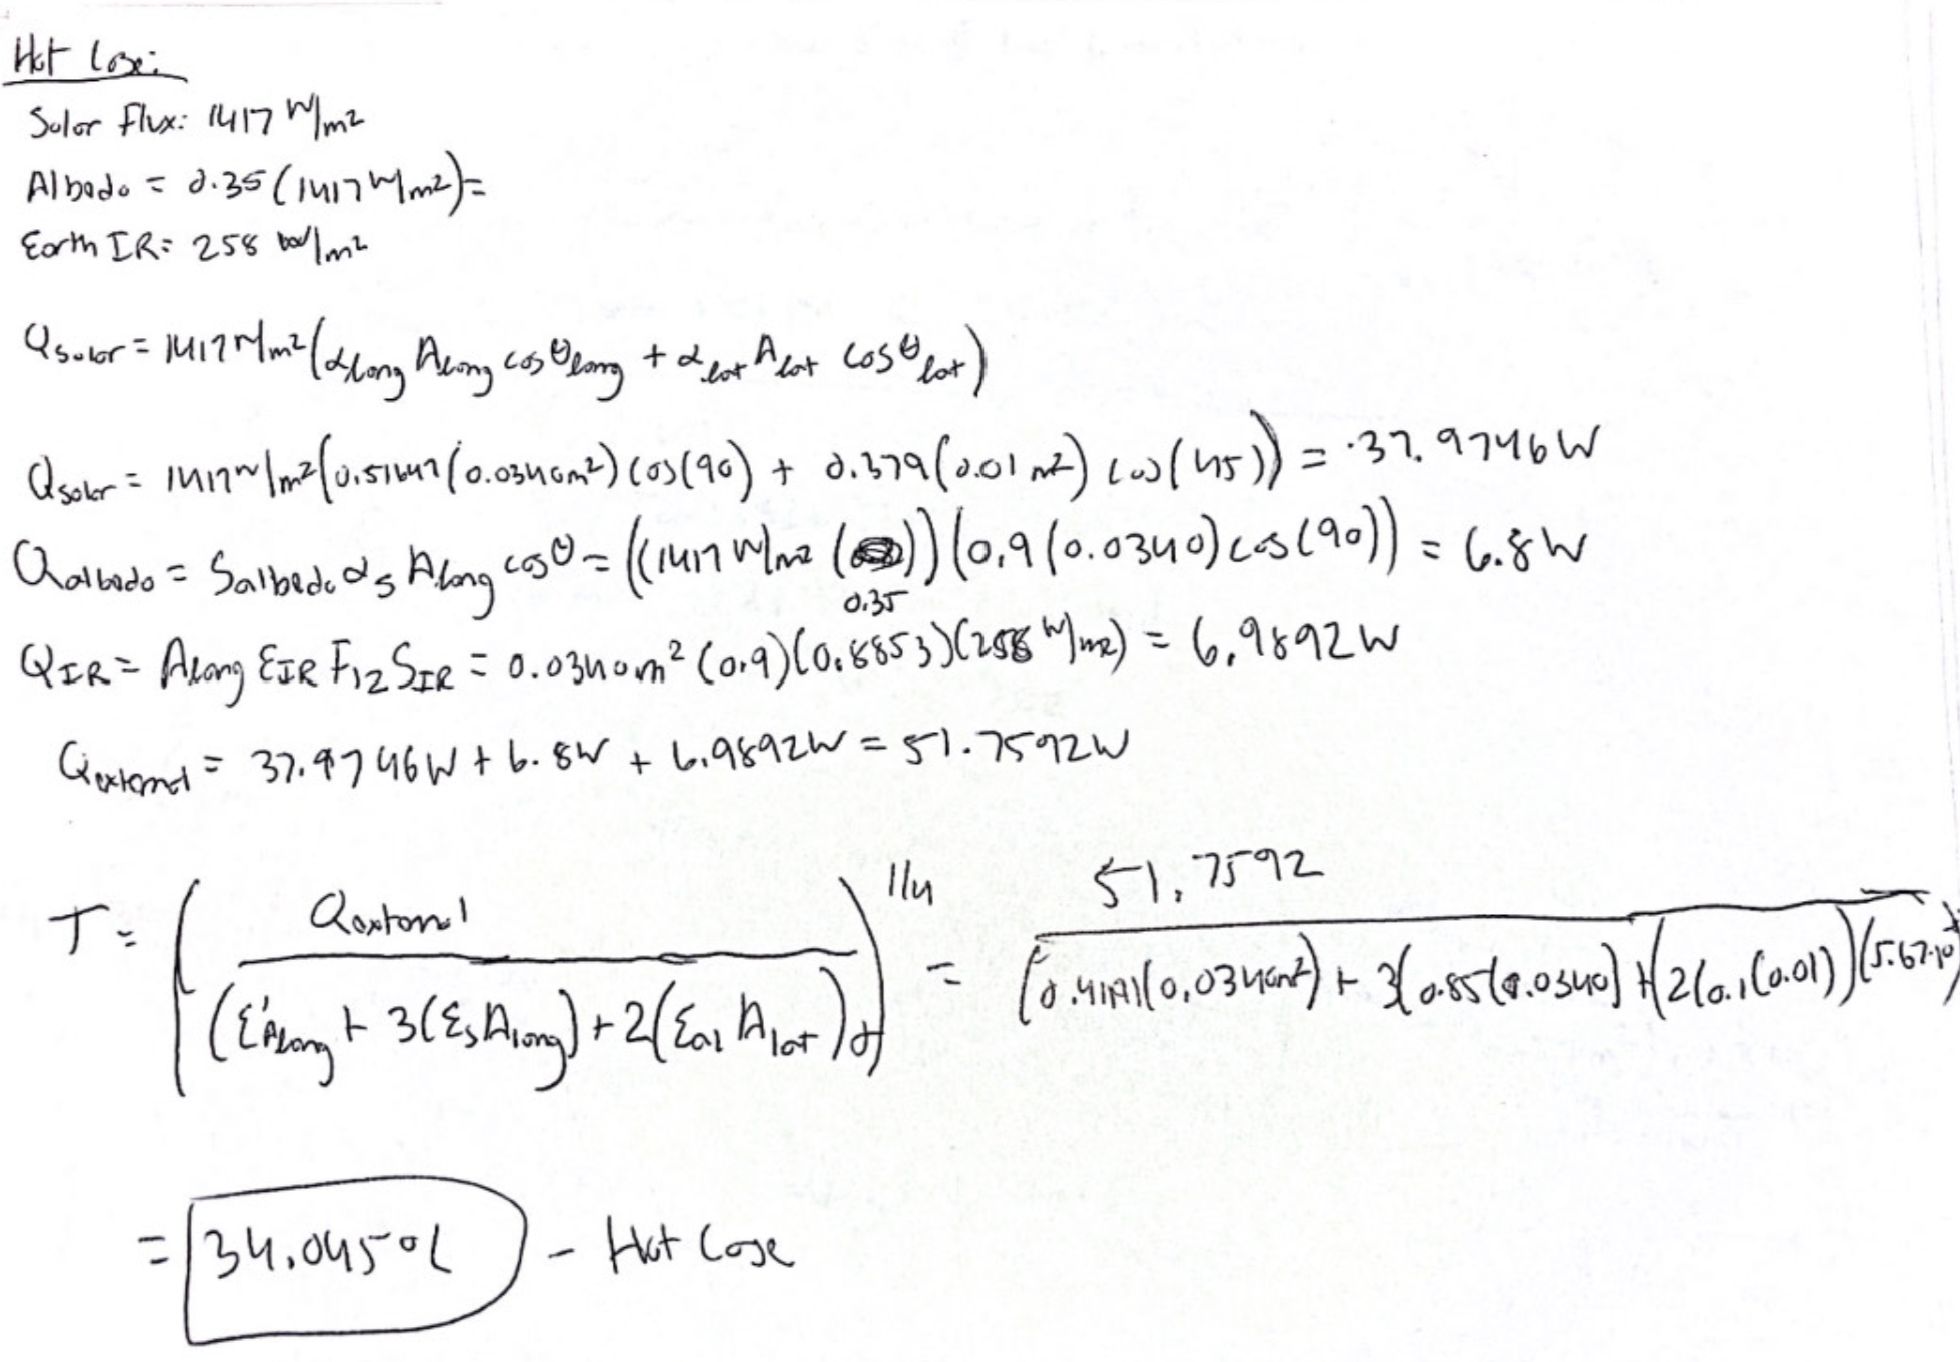 Hot Case:
Solar Flux: 1417 W/m²
Albedo = 0.35 (1417 W/m²) =
Earth IR = 258 W/m²
Qsolar = 1417 W/m² (αlong Along cosθlong + αlat Alat cosθlat)
Qsolar = 1417 W/m² (0.51647 (0.0340m²) cos(90) + 0.379 (0.01 m²) cos(45)) = 37.9746 W
Qalbedo = Salbedo αs Along cosθ = ((1417 W/m² (0.35)) (0.9 (0.0340) cos(90)) = 6.8 W
QIR = Along εIR F12 SIR = 0.0340m² (0.9)(0.8853)(258 W/m²) = 6.9892 W
Qexternal = 37.9746W + 6.8W + 6.9892W = 51.7592W
T = (Qexternal / (ε'Along + 3(εs Along) + 2(εal Alat)) σ)^1/4 = 51.7592 / (0.4191(0.0340m²) + 3(0.85(0.0340) + (2(0.1(0.01)) (5.67·10
= 34.045°C - Hot Case